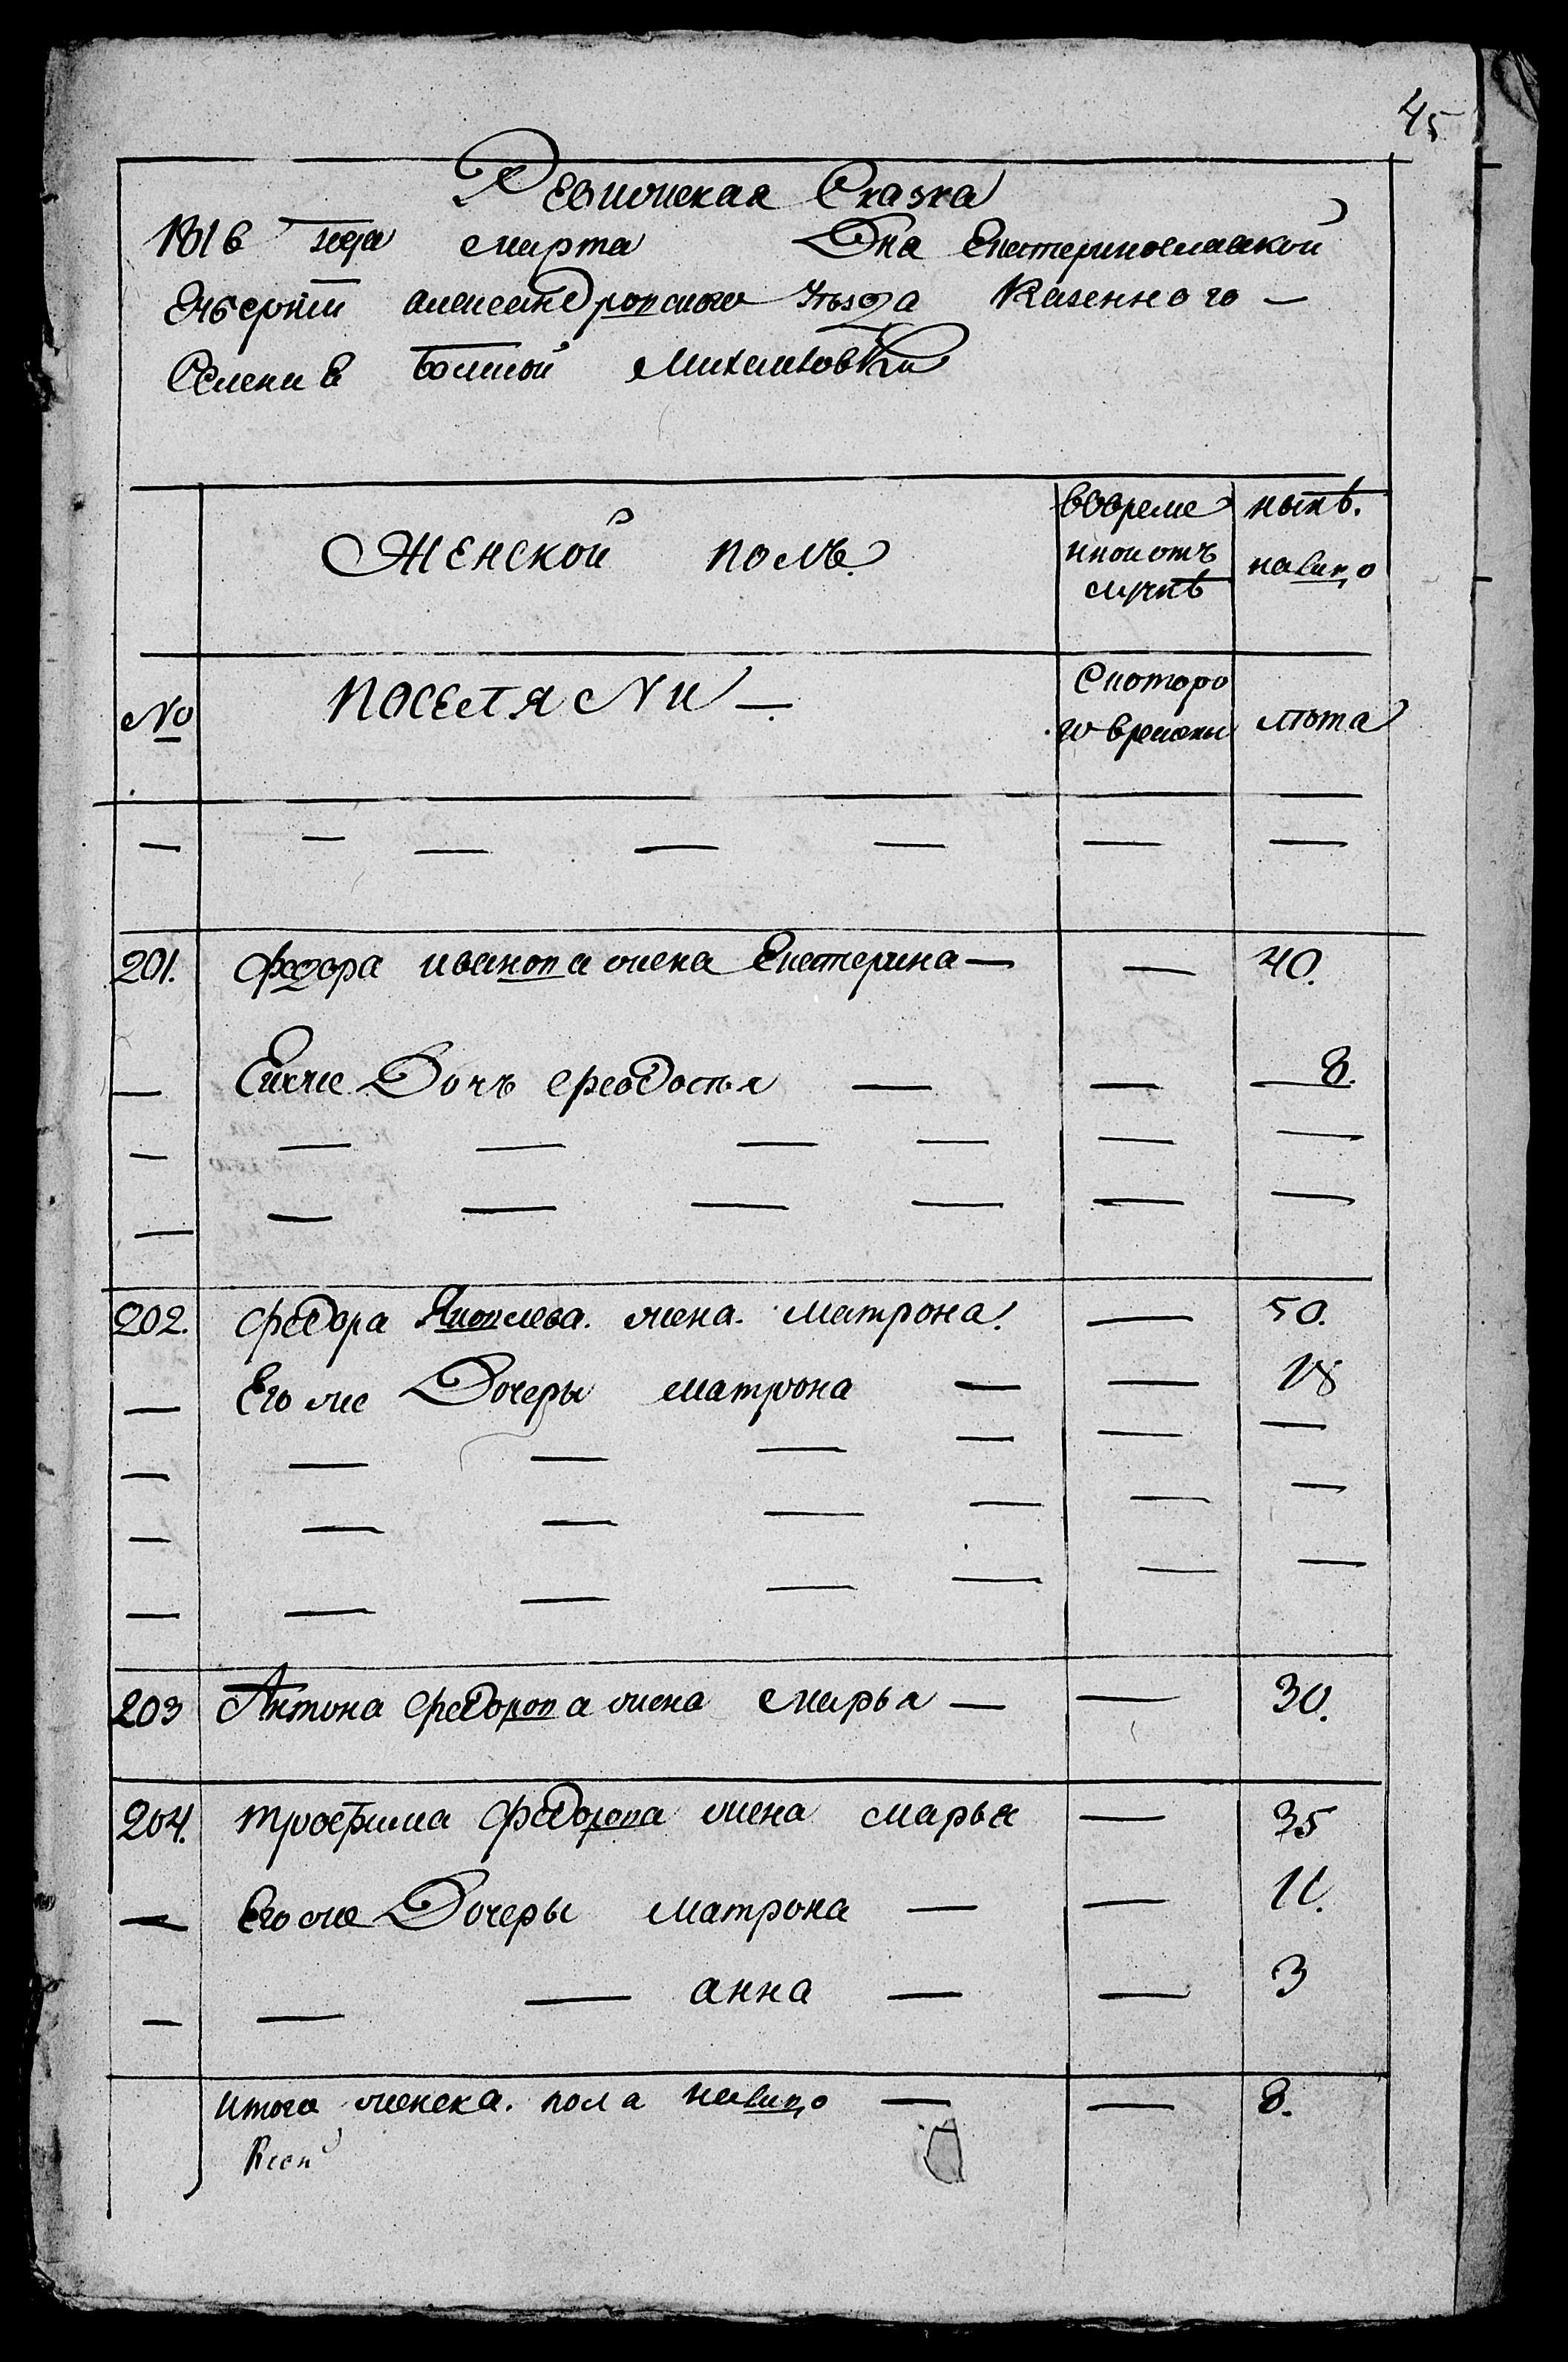 45
Ревижская Сказка
1816 года марта Дня Екатеринославской
Губернiи александровскаго уѣзда Казенного —
Селения Болшой михаиловки
Женской полъ.
вовремен
ной отъ
лучкѣ
нынѣ.
налицо
№
поселяни —
Скоторо
го времени
лѣта
— — — — — —
201. федора иванова жена Екатерина — — 40.
— Ихже Дочь феодосья — — 8.
— — — — — — —
— — — — — — —
202. федора Яковлева. жена. матрона. — 50.
— Его же Дочеры матрона — — 18
— — — — — — —
— — — — — — —
— — — — — — —
203 Антона федорова жена марья — — 30.
204. трофима федорова жена марья — 35
— Его же Дочеры матрона — — 11.
— — — анна — — 3
итого женска. пола налицо — — 8.